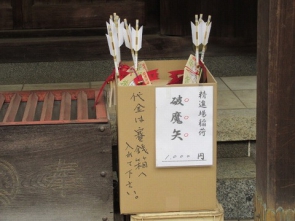 精進場稲荷
破魔矢
1000円
代金は賽銭箱へ
入れて下さい。